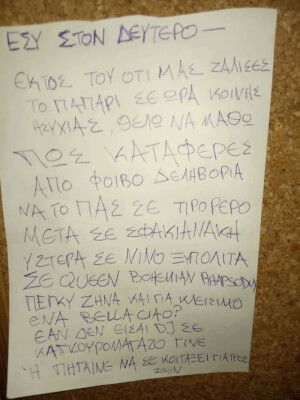 ΕΣΥ ΣΤΟΝ ΔΕΥΤΕΡΟ —
ΕΚΤΟΣ ΤΟΥ ΟΤΙ ΜΑΣ ΖΑΛΙΣΕΣ
ΤΟ ΠΑΠΑΡΙ ΣΕ ΩΡΑ ΚΟΙΝΗΣ
ΗΣΥΧΙΑΣ, ΘΕΛΩ ΝΑ ΜΑΘΩ
ΠΩΣ ΚΑΤΑΦΕΡΕΣ
ΑΠΟ ΦΟΙΒΟ ΔΕΛΗΒΟΡΙΑ
ΝΑ ΤΟ ΠΑΣ ΣΕ ΤΙΡΟΡΕΡΟ
ΜΕΤΑ ΣΕ ΣΦΑΚΙΑΝΑΚΗ
ΥΣΤΕΡΑ ΣΕ ΝΙΝΟ ΞΥΠΟΛΙΤΑ
ΣΕ QUEEN BOHEMIAN RHAPSODY
ΠΕΓΚΥ ΖΗΝΑ ΚΑΙ ΓΙΑ ΚΛΕΙΣΙΜΟ
ΕΝΑ BELLA CIAO?
ΕΑΝ ΔΕΝ ΕΙΣΑΙ DJ ΣΕ
ΚΑΓΚΟΥΡΟΜΑΓΑΖΟ ΓΙΝΕ
Ή ΠΗΓΑΙΝΕ ΝΑ ΣΕ ΚΟΙΤΑΞΕΙ ΓΙΑΤΡΟΣ
ΖΩΩΝ